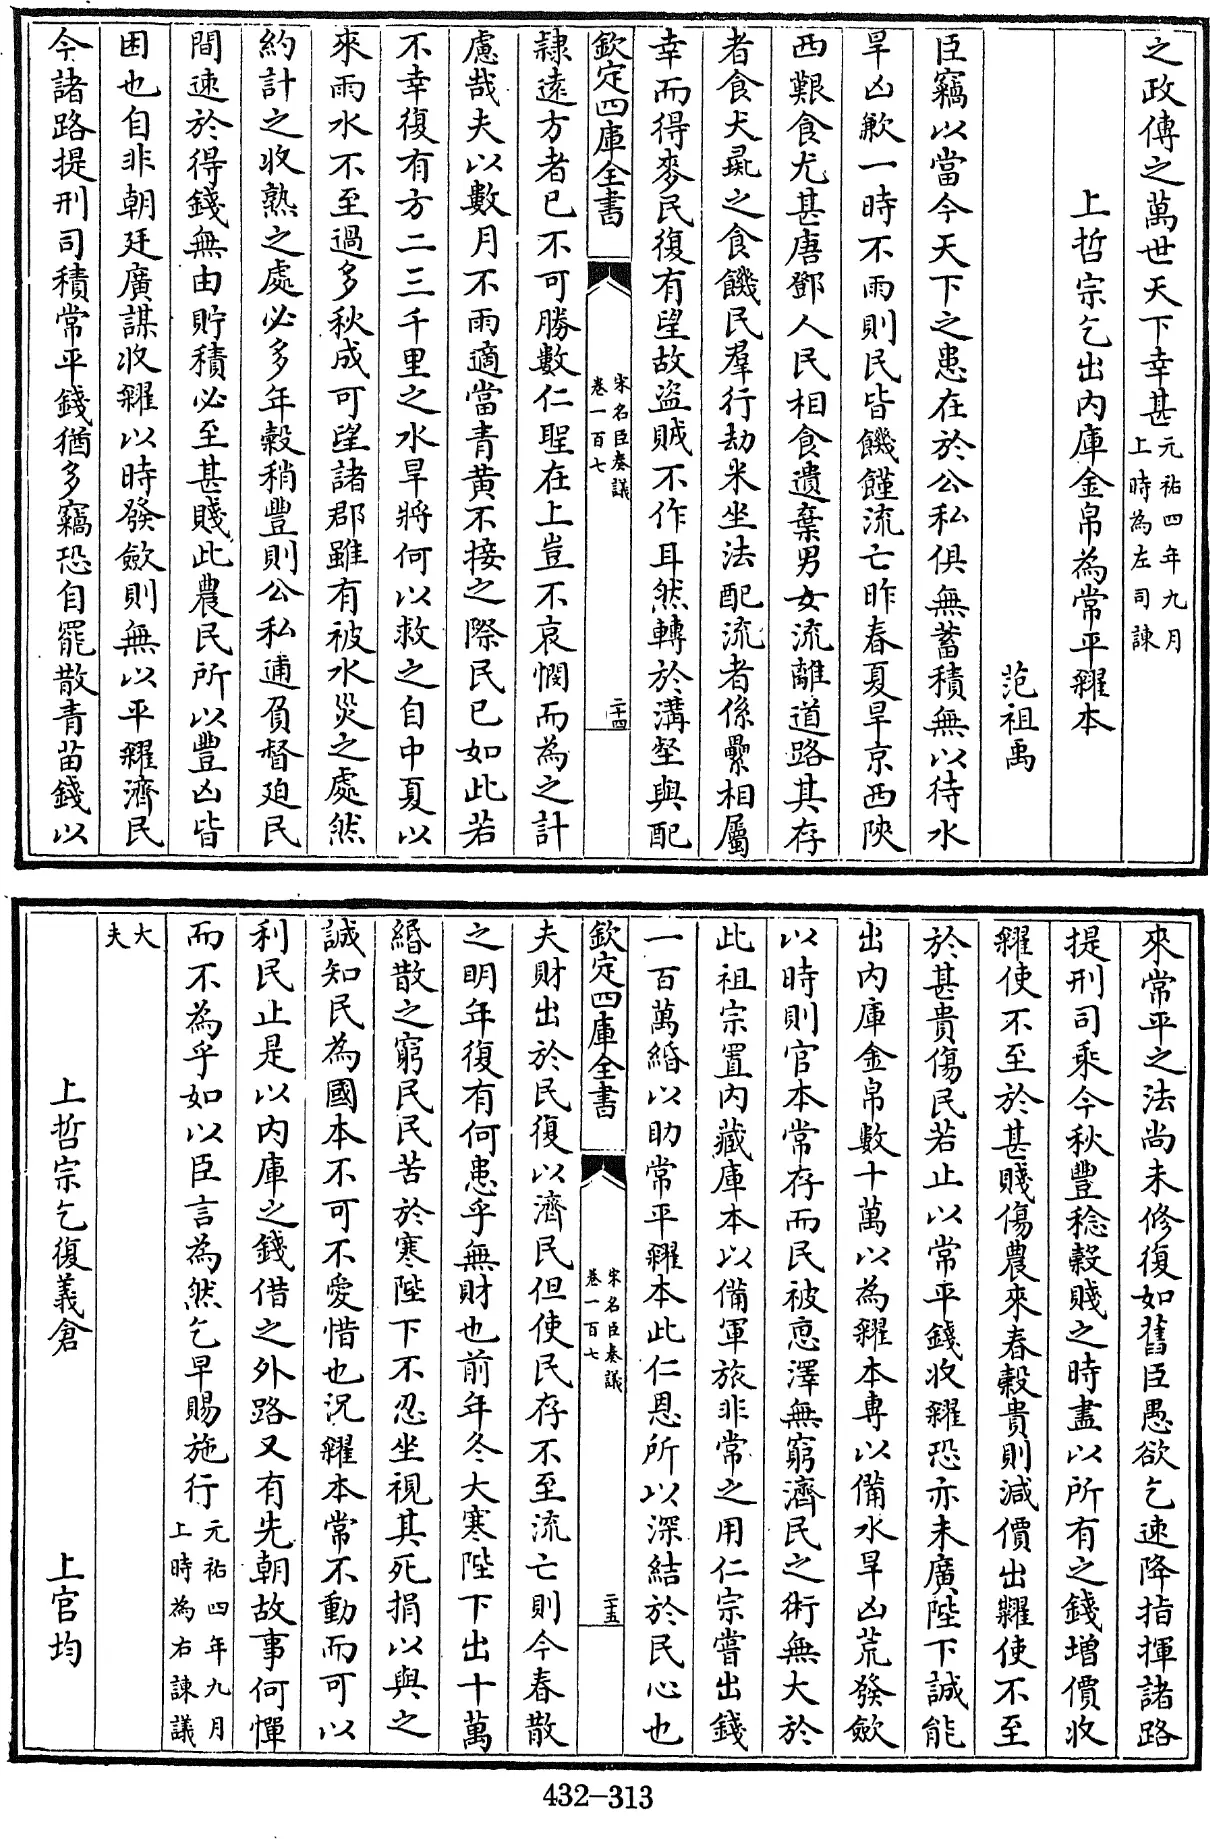 之政傳之萬世天下幸甚元祐四年九月上時為左司諫
上哲宗乞出内庫金帛為常平糴本
范祖禹
臣竊以當今天下之患在於公私俱無蓄積無以待水
旱凶歉一時不雨則民皆饑饉流亡昨春夏旱京西陜
西艱食尤甚唐鄧人民相食遺棄男女流離道路其存
者食犬彘之食饑民羣行劫米坐法配流者係纍相屬
幸而得麥民復有望故盜賊不作耳然轉於溝壑與配
欽定四庫全書
宋名臣奏議
卷一百七
二十四
隷遠方者已不可勝數仁聖在上豈不哀憫而為之計
慮哉夫以數月不雨適當青黄不接之際民已如此若
不幸復有方二三千里之水旱將何以救之自中夏以
來雨水不至過多秋成可望諸郡雖有被水災之處然
約計之收熟之處必多年穀稍豐則公私逋負督廹民
間速於得錢無由貯積必至甚賤此農民所以豐凶皆
困也自非朝廷廣謀收糴以時發歛則無以平糴濟民
今諸路提刑司積常平錢猶多竊恐自罷散青苗錢以
來常平之法尚未修復如舊臣愚欲乞速降指揮諸路
提刑司乘今秋豐稔穀賤之時盡以所有之錢增價收
糴使不至於甚賤傷農來春穀貴則減價出糶使不至
於甚貴傷民若止以常平錢收糴恐亦未廣陛下誠能
出内庫金帛數十萬以為糴本專以備水旱凶荒發歛
以時則官本常存而民被恵澤無窮濟民之術無大於
此祖宗置内藏庫本以備軍旅非常之用仁宗嘗出錢
一百萬緡以助常平糴本此仁恩所以深結於民心也
欽定四庫全書
宋名臣奏議
卷一百七
二十五
夫財出於民復以濟民但使民存不至流亡則今春散
之明年復有何患乎無財也前年冬大寒陛下出十萬
緡散之窮民民苦於寒陛下不忍坐視其死捐以與之
誠知民為國本不可不愛惜也況糴本常不動而可以
利民止是以内庫之錢借之外路又有先朝故事何憚
而不為乎如以臣言為然乞早賜施行元祐四年九月上時為右諫議
大夫
上哲宗乞復義倉　上官均
432-313